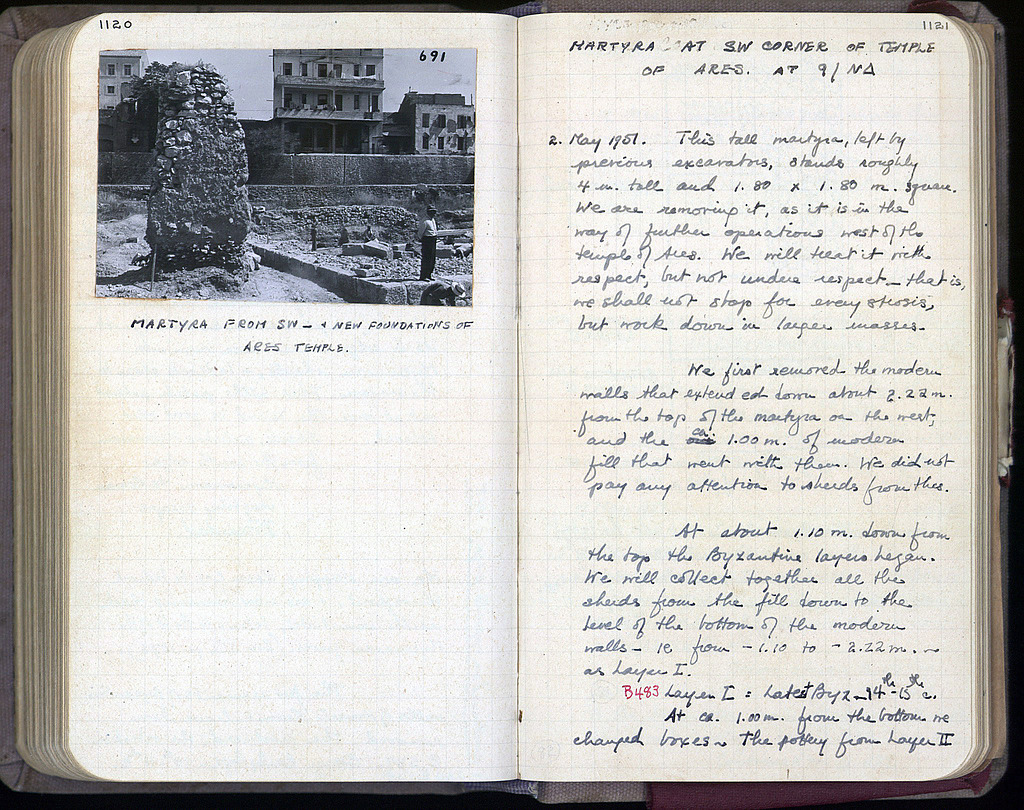 1120
691
MARTYRA FROM SW - & NEW FOUNDATIONS OF
ARES TEMPLE.
1121
MARTYRA AT SW CORNER OF TEMPLE
OF ARES. AT 9/ΝΔ
2. May 1951. This tall martyra, left by
previous excavators, stands roughly
4 m. tall and 1.80 x 1.80 m. square.
We are removing it, as it is in the
way of further operations west of the
temple of Ares. We will treat it with
respect, but not undue respect - that is,
we shall not stop for every stosis,
but work down in larger masses.
We first removed the modern
walls that extended down about 2.22 m.
from the top of the martyra on the west,
and the ca. 1.00 m. of modern
fill that went with them. We did not
pay any attention to sherds from this.
At about 1.10 m. down from
the top the Byzantine layers began.
We will collect together all the
sherds from the fill down to the
level of the bottom of the modern
walls - ie from -1.10 to -2.22 m. ~
as Layer I.
B483 Layer I = Latest Byz - 14th-15th c.
At ca. 1.00 m. from the bottom we
changed boxes ~ the pottery from Layer II